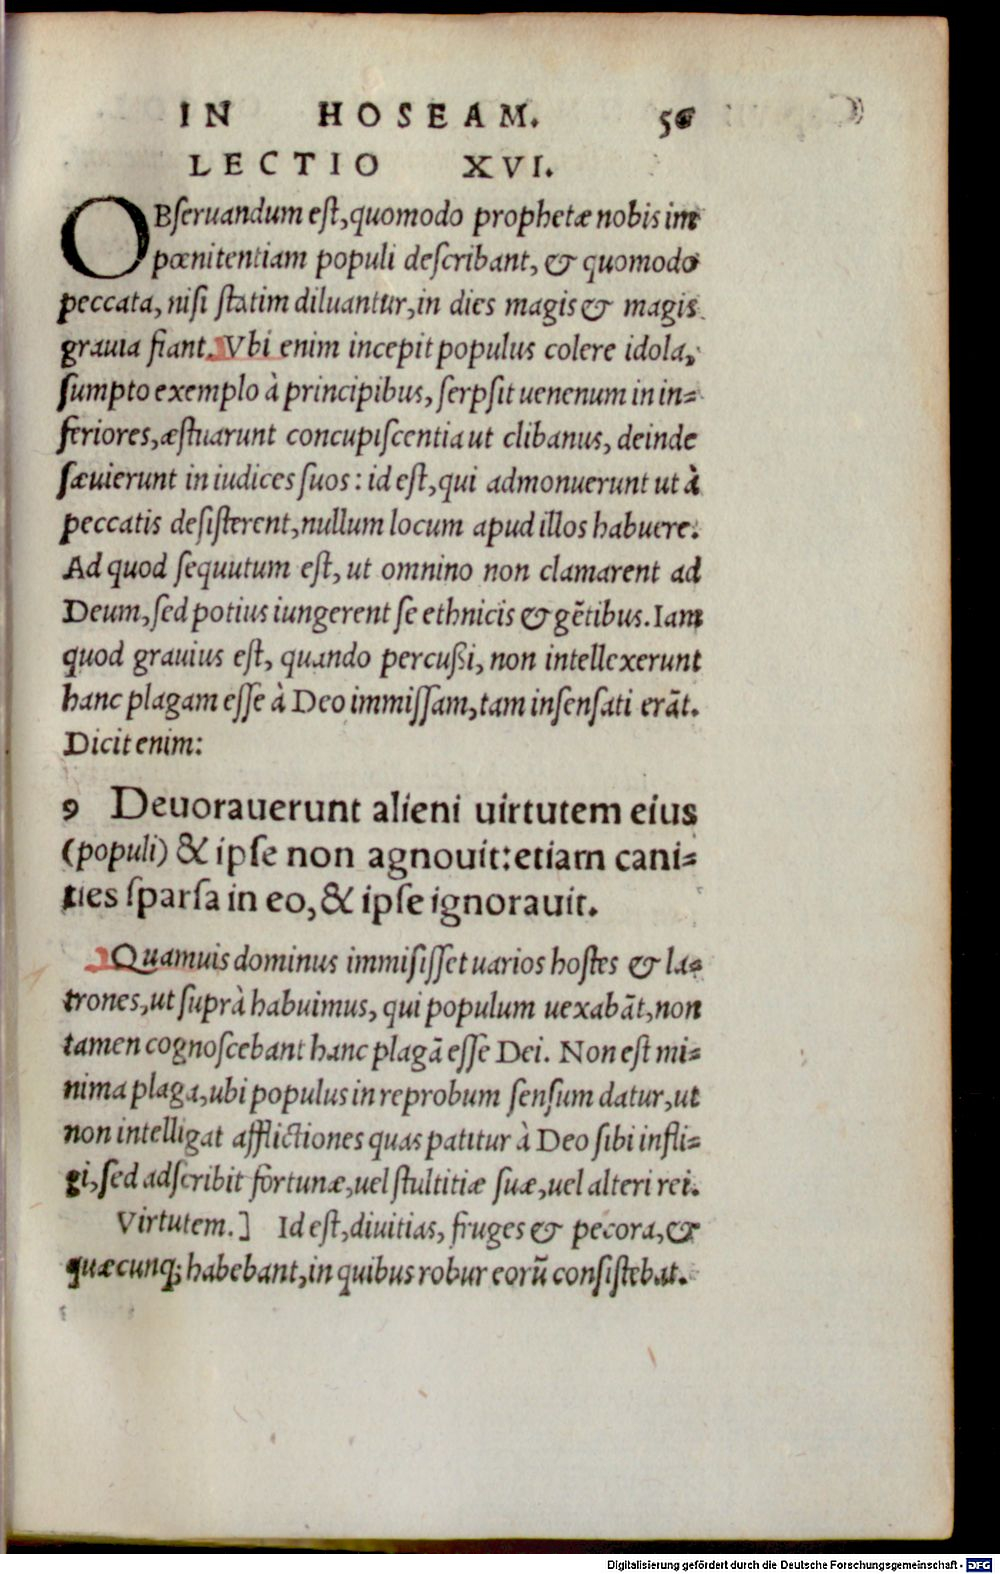 IN HOSEAM. 56
LECTIO XVI.
OBſeruandum eſt, quomodo prophetæ nobis im
pœnitentiam populi deſcribant, & quomodo
peccata, niſi ſtatim diluantur, in dies magis & magis
grauia fiant. Vbi enim incepit populus colere idola,
ſumpto exemplo à principibus, ſerpſit uenenum in in=
feriores, æſtuarunt concupiſcentia ut clibanus, deinde
ſæuierunt in iudices ſuos: id eſt, qui admonuerunt ut à
peccatis deſiſterent, nullum locum apud illos habuere.
Ad quod ſequutum eſt, ut omnino non clamarent ad
Deum, ſed potius iungerent ſe ethnicis & gẽtibus. Iam
quod grauius eſt, quando percußi, non intellexerunt
hanc plagam eſſe à Deo immiſſam, tam inſenſati erãt.
Dicit enim:
9 Deuorauerunt alieni uirtutem eius
(populi) & ipſe non agnouit: etiam cani=
ties ſparſa in eo, & ipſe ignorauit.
Quamuis dominus immiſiſſet uarios hoſtes & la=
trones, ut ſuprà habuimus, qui populum uexabãt, non
tamen cognoſcebant hanc plagã eſſe Dei. Non eſt mi=
nima plaga, ubi populus in reprobum ſenſum datur, ut
non intelligat afflictiones quas patitur à Deo ſibi infli=
gi, ſed adſcribit fortunæ, uel ſtultitiæ ſuæ, uel alteri rei.
Virtutem.] Id eſt, diuitias, fruges & pecora, &
quæcunq; habebant, in quibus robur eorũ conſiſtebat.
Digitalisierung gefördert durch die Deutsche Forschungsgemeinschaft - DFG